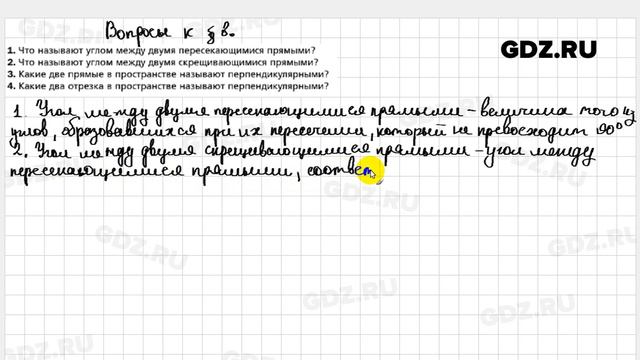 Вопросы к § 8.
GDZ.RU
1. Что называют углом между двумя пересекающимися прямыми?
2. Что называют углом между двумя скрещивающимися прямыми?
3. Какие две прямые в пространстве называют перпендикулярными?
4. Какие два отрезка в пространстве называют перпендикулярными?
1. Угол между двумя пересекающимися прямыми – величина того из
углов, образовавшихся при их пересечении, который не превосходит 90°
2. Угол между двумя скрещивающимися прямыми – угол между
пересекающимися прямыми, соответ
GDZ.RU
GDZ.RU
GDZ.RU
GDZ.RU
GDZ.RU